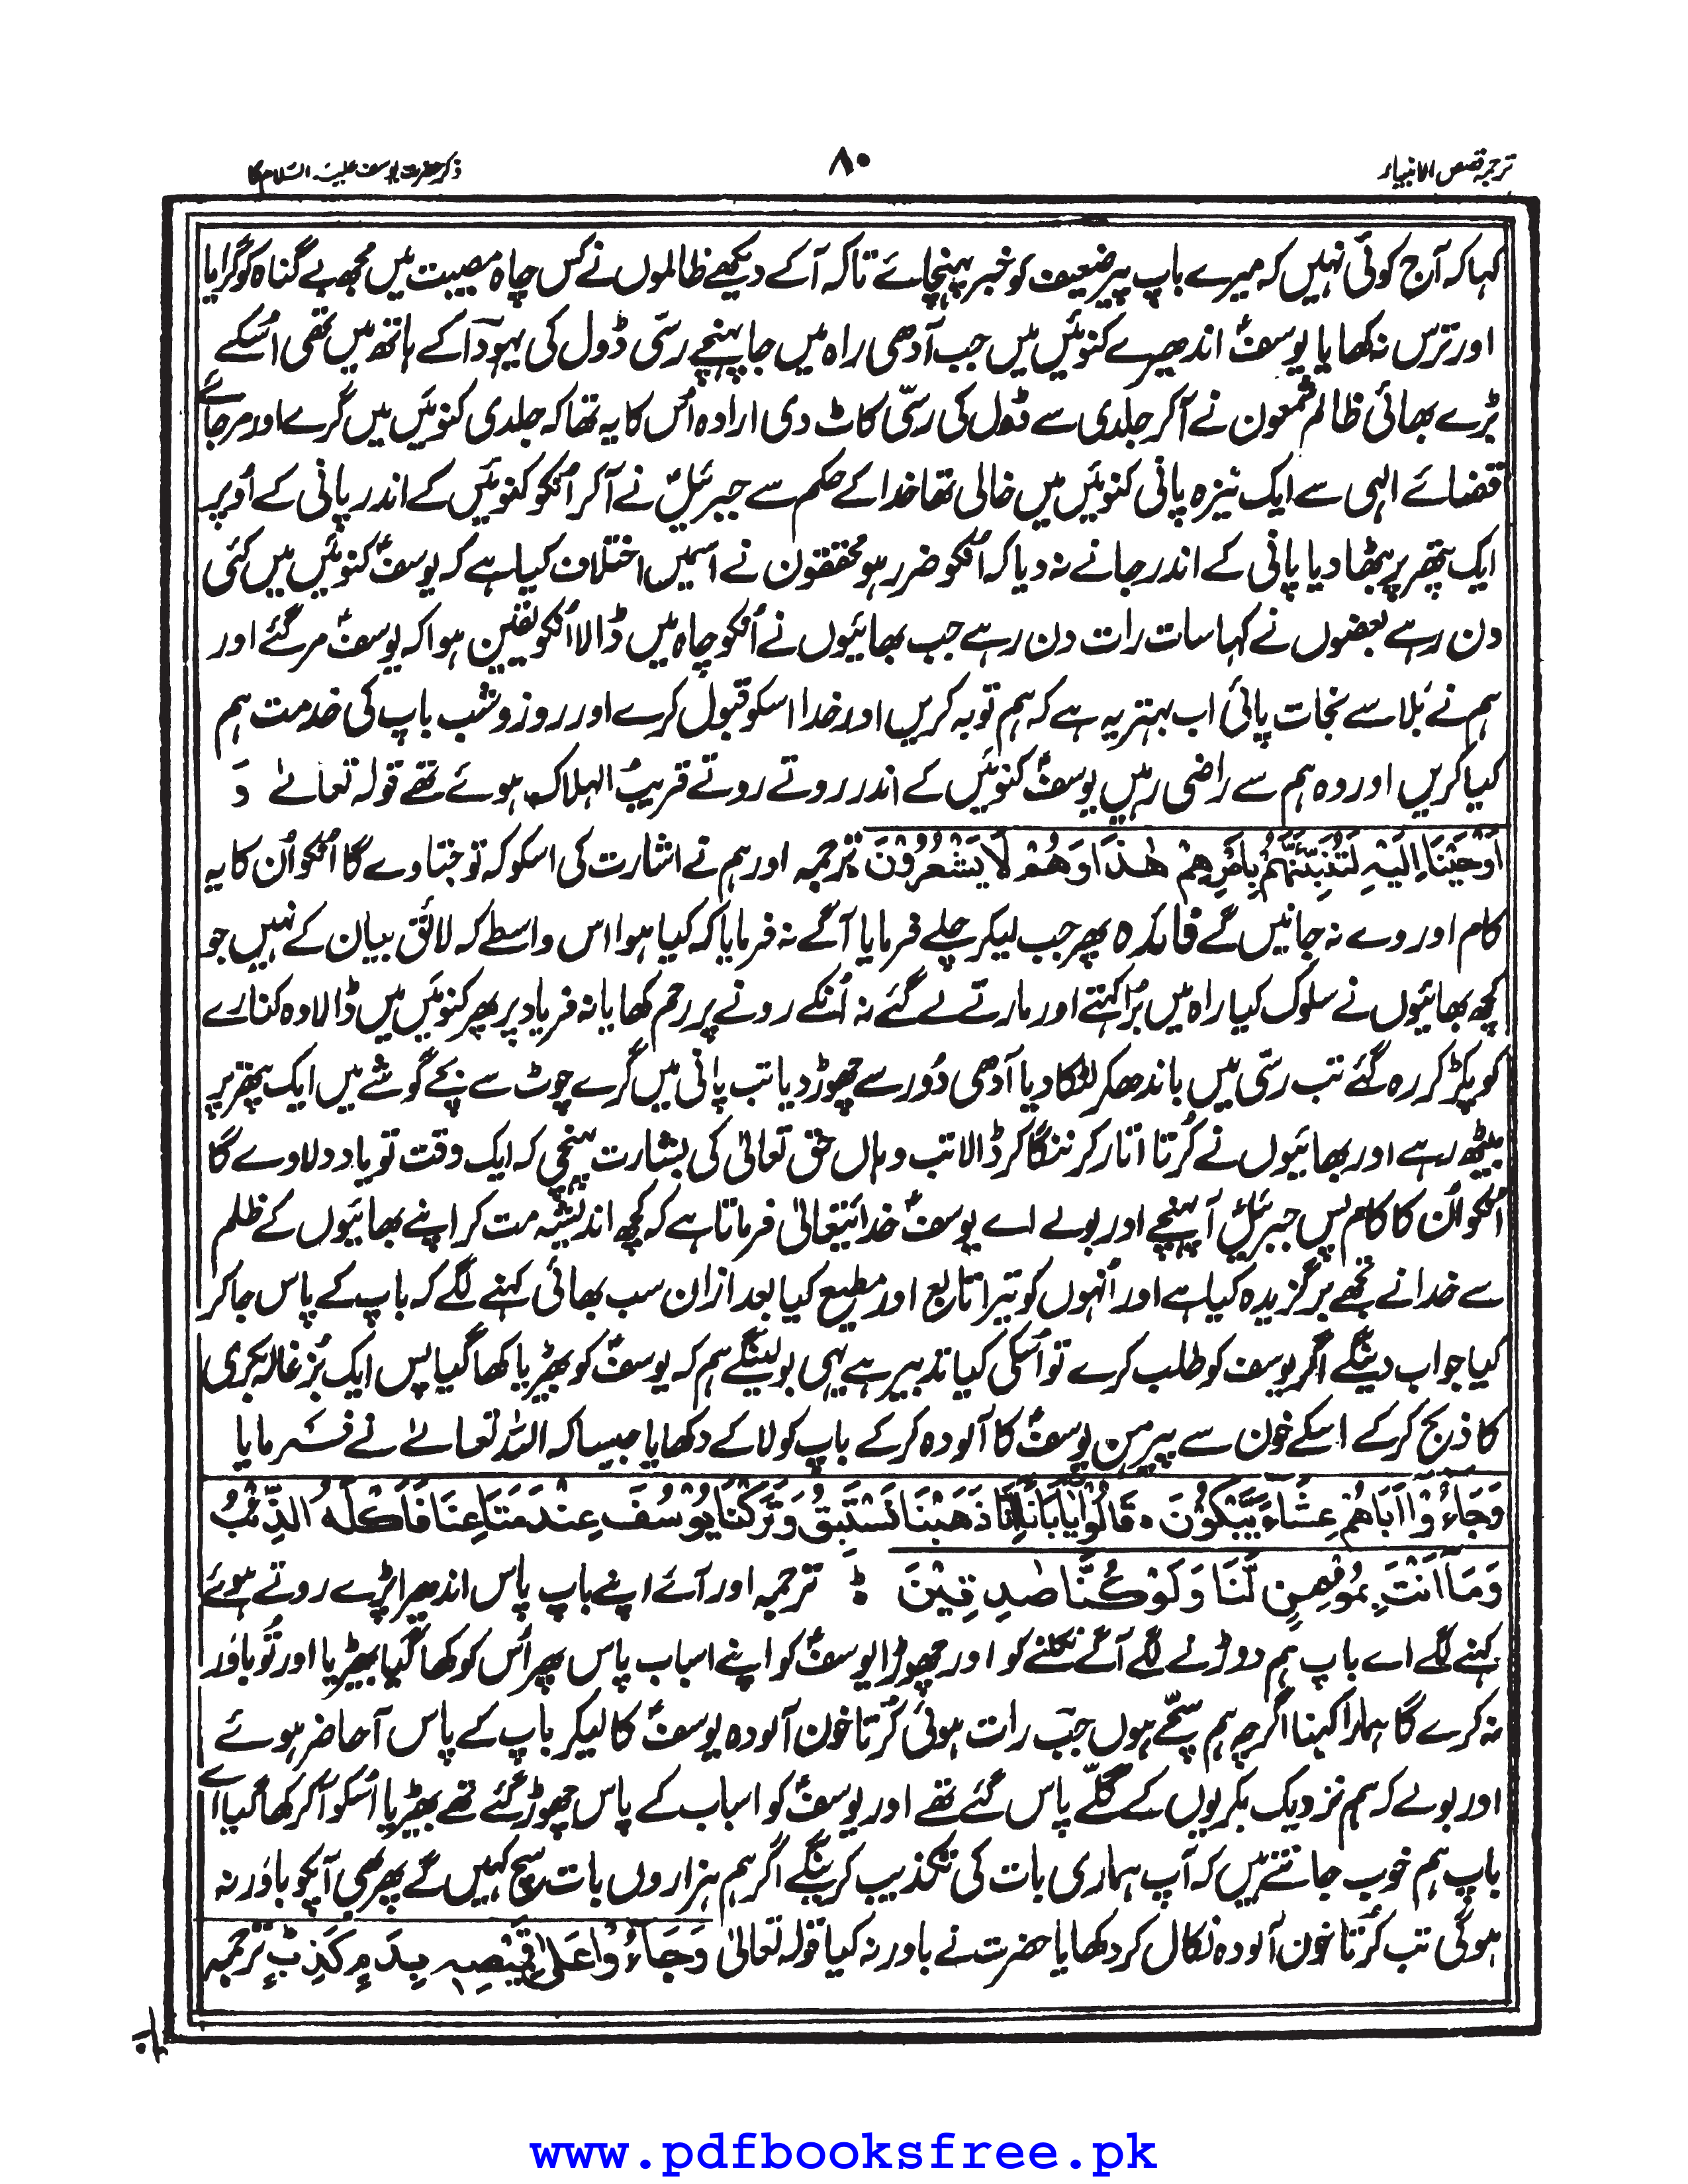 ترجمہ قصص الانبیاء
۸۰
ذکر حضرت یوسف علیہ السلام کا
کہا کہ آج کوئی نہیں کہ میرے باپ پیر ضعیف کو خبر پہنچائے تاکہ آ کے دیکھے ظالموں نے کس چاہ مصیبت میں مجھ بے گناہ کو گرایا
اور ترس نہ کھایا یوسفؑ اندھیرے کنوئیں میں جب آدھی راہ میں جا پہنچے رسّی ڈول کی یہودا کے ہاتھ میں تھی اُسکے
بڑے بھائی ظالم شمعون نے آکر جلدی سے ڈول کی رسّی کاٹ دی ارادہ اُس کا یہ تھا کہ جلدی کنوئیں میں گرے اور مر جائے
قضائے الہی سے ایک نیزہ پانی کنوئیں میں خالی تھا خدا کے حکم سے جبرئیلؑ نے آکر اُنکو کنوئیں کے اندر پانی کے اُوپر
ایک پتھر پر بٹھا دیا پانی کے اندر جانے نہ دیا کہ اُنکو ضرر ہو محققون نے اسمیں اختلاف کیا ہے کہ یوسفؑ کنوئیں میں کئی
دن رہے بعضوں نے کہا سات رات دن رہے جب بھائیوں نے اُنکو چاہ میں ڈالا اُنکو یقین ہوا کہ یوسفؑ مر گئے اور
ہم نے بلا سے نجات پائی اب بہتر یہ ہے کہ ہم توبہ کریں اور خدا اسکو قبول کرے اور روز و شب باپ کی خدمت ہم
کیا کریں اور وہ ہم سے راضی رہیں یوسفؑ کنوئیں کے اندر روتے روتے قریبُ الہلاک ہوئے تھے قولہ تعالےٰ وَ
اَوْحَیْنَا اِلَیْہِ لَتُنَبِّئَنَّھُمْ بِاَمْرِھِمْ ھٰذَا وَھُمْ لَا یَشْعُرُوْنَ ترجمہ اور ہم نے اشارت کی اسکو کہ تو جتاوے گا اُنکو اُن کا یہ
کام اور وے نہ جانیں گے فائدہ پھر جب لیکر چلے فرمایا آگے نہ فرمایا کہ کیا ہوا اس واسطے کہ لائق بیان کے نہیں جو
کچھ بھائیوں نے سلوک کیا راہ میں بُرا کہتے اور مارتے لے گئے نہ اُنکے رونے پر رحم کھایا نہ فریاد پر پھر کنوئیں میں ڈالا وہ کنارے
کو پکڑ کر رہ گئے تب رسّی میں باندھکر لٹکا دیا آدھی دُور سے چھوڑ دیا تب پانی میں گرے چوٹ سے بچے گوشے میں ایک پتھر پر
بیٹھ رہے اور بھائیوں نے کُرتا اتار کر ننگا کر ڈالا تب وہاں حق تعالیٰ کی بشارت پہنچی کہ ایک وقت تو یاد دلاوے گا
اُنکو اُن کا کام پس جبرئیلؑ آپہنچے اور بولے اے یوسفؑ خدائتعالیٰ فرماتا ہے کہ کچھ اندیشہ مت کر اپنے بھائیوں کے ظلم
سے خدا نے تجھے برگزیدہ کیا ہے اور اُنہوں کو تیرا تابع اور مطیع کیا بعد ازان سب بھائی کہنے لگے کہ باپ کے پاس جا کر
کیا جواب دینگے اگر یوسف کو طلب کرے تو اُسکی کیا تدبیر ہے یہی بولینگے ہم کہ یوسفؑ کو بھیڑیا کھا گیا پس ایک بُزغالہ بکری
کا ذبح کر کے اسکے خون سے پیرہن یوسفؑ کا آلودہ کرکے باپ کو لا کے دکھایا جیسا کہ اللہ تعالےٰ نے فرمایا
وَجَاءُوْا اَبَاھُمْ عِشَاءً یَّبْکُوْنَ ۔ قَالُوْا یٰاَبَانَا اِنَّا ذَھَبْنَا نَسْتَبِقُ وَتَرَکْنَا یُوْسُفَ عِنْدَ مَتَاعِنَا فَاَکَلَہُ الذِّئْبُ
وَمَا اَنْتَ بِمُؤْمِنٍ لَّنَا وَلَوْ کُنَّا صٰدِقِیْنَ ؞ ترجمہ اور آئے اپنے باپ پاس اندھیرا پڑے روتے ہوئے
کہنے لگے اے باپ ہم دوڑنے لگے آگے نکلنے کو اور چھوڑا یوسفؑ کو اپنے اسباب پاس پھر اُس کو کھا گیا بھیڑیا اور تُو باور
نہ کرے گا ہمارا کہنا اگرچہ ہم سچّے ہوں جب رات ہوئی کُرتا خون آلودہ یوسفؑ کا لیکر باپ کے پاس آ حاضر ہوئے
اور بولے کہ ہم نزدیک بکریوں کے گلّے پاس گئے تھے اور یوسفؑ کو اسباب کے پاس چھوڑ گئے تھے بھیڑیا اُسکو آکر کھا گیا اے
باپ ہم خوب جانتے ہیں کہ آپ ہماری بات کی تکذیب کرینگے اگر ہم ہزاروں بات سچ کہیں گے پھر بھی آپکو باور نہ
ہوگی تب کُرتا خون آلودہ نکال کر دکھایا حضرت نے باور نہ کیا قولہ تعالیٰ وَجَاءُوْا عَلٰی قَمِیْصِہٖ بِدَمٍ کَذِبٍ ترجمہ
www.pdfbooksfree.pk